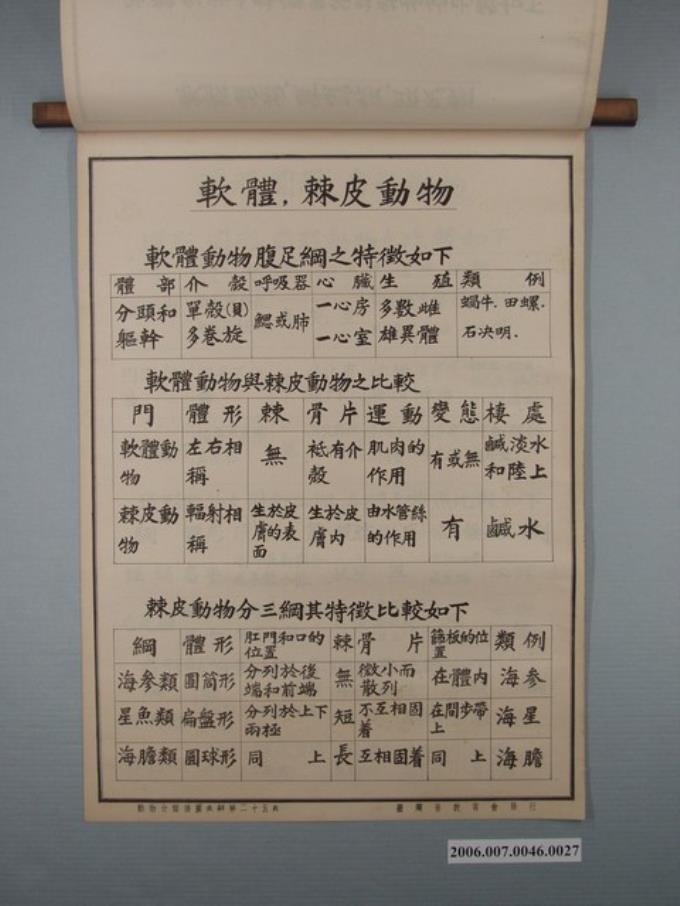 軟體，棘皮動物
軟體動物腹足綱之特徵如下
體部 介殼 呼吸器 心臟 生殖 類例
分頭和軀幹 單殼(貝)多卷旋 鰓或肺 一心房一心室 多數雌雄異體 蝸牛．田螺．石决明．
軟體動物與棘皮動物之比較
門 體形 棘 骨片 運動 變態 棲處
軟體動物 左右相稱 無 祗有介殼 肌肉的作用 有或無 鹹淡水和陸上
棘皮動物 輻射相稱 生於皮膚的表面 生於皮膚內 由水管絲的作用 有 鹹水
棘皮動物分三綱其特徵比較如下
綱 體形 肛門和口的位置 棘 骨片 篩板的位置 類例
海參類 圓筒形 分列於後端和前端 無 微小而散列 在體內 海参
星魚類 扁盤形 分列於上下兩極 短 不互相固着 在間步帶上 海星
海膽類 圓球形 同上 長 互相固着 同上 海膽
臺灣省教育會發行
2006.007.0046.0027